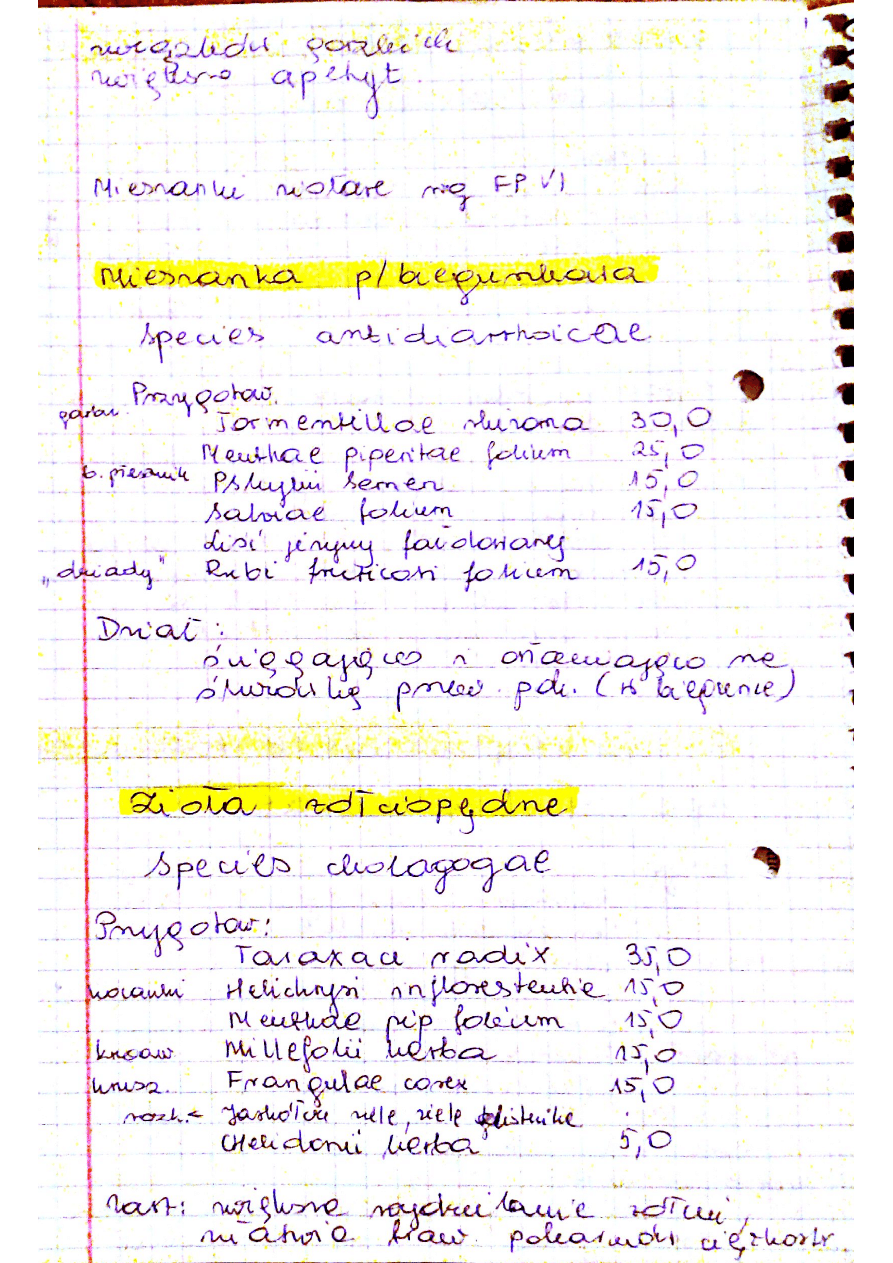 względu gorzkich
większa apetyt.
Mieszanki ziołowe wg FP VI
Mieszanka p/biegunkowa
Species antidiarrhoicae
Przygotow.
garbn. Tormentillae rhizoma 30,0
Menthae piperitae folium 25,0
b. piesznik Psyllii semen 15,0
Salviae folium 15,0
Liść jeżyny fałdowanej
„dziady" Rubi fruticosi folium 15,0
Dział:
ściągająco i osłaniająco na
śluzówkę przew. pok. (w biegunce)
Zioła żółciopędne
Species cholagogae
Przygotow:
Taraxaci radix 35,0
kocanki Helichrysi inflorestentie 15,0
Menthae pip folium 15,0
krwaw Millefolii herba 15,0
krusz. Frangulae corex 15,0
rozk.< Jaskółcze ziele, ziele glistnika
Chelidonii herba 5,0
Zast: większe wydzielanie żółci,
ułatwia traw pokarmów ciężkostr.